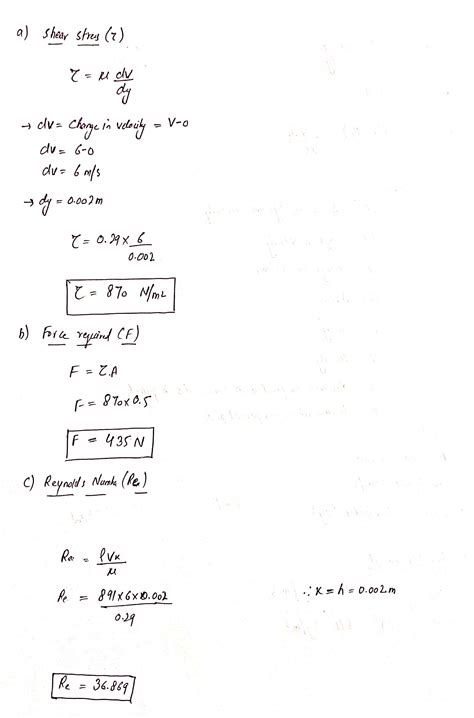 a) Shear stress (τ)
τ = μ dv/dy
→ dv = Change in velocity = V-0
dv = 6-0
dv = 6 m/s
→ dy = 0.002m
τ = 0.29 x 6/0.002
τ = 870 N/m2
b) Force required (F)
F = τ.A
F = 870x0.5
F = 435 N
c) Reynolds Number (Re)
Re = ρVx/μ
Re = 891x6x0.002/0.29 ∴ x = h = 0.002m
Re = 36.869